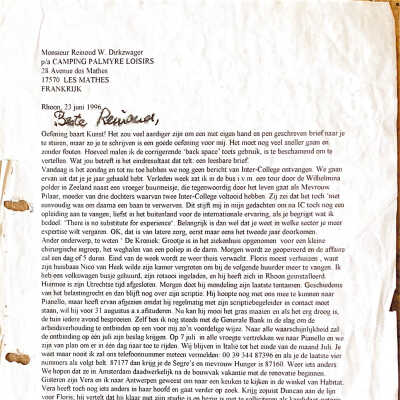 Monsieur Reinood W. Dirkzwager
p/a CAMPING PALMYRE LOISIRS
28 Avenue des Mathes
17570 LES MATHES
FRANKRIJK
Rhoon, 23 juni 1996
Beste Reinood,
Oefening baart Kunst! Het zou veel aardiger zijn om een met eigen hand en pen geschreven brief naar je
te sturen, maar zo je te schrijven is een goede oefening voor mij. Het moet nog veel sneller gaan en
zonder fouten. Hoeveel malen ik de corrigerende 'back space' toets gebruik, is te beschamend om te
vertellen. Wat jou betreft is het eindresultaat dat telt: een leesbare brief.
Vandaag is het zondag en tot nu toe hebben we nog geen bericht van Inter-College ontvangen. We gaan
ervan uit dat je jaar gehaald hebt. Verleden week zat ik in de bus i.v.m. een tour door de Wilhelmina
polder in Zeeland naast een vroeger buurmeisje, die tegenwoordig door het leven gaat als Mevrouw
Pilaar, moeder van drie dochters waarvan twee Inter-College voltooid hebben. Zij zei dat het toch 'niet
eenvoudig was om daarna een baan te verwerven. Dit stijft mij in mijn gedachten om na IC toch nog een
opleiding aan te vangen, liefst in het buitenland voor de internationale ervaring, als je begrijpt wat ik
bedoel. 'There is no substitute for experience'. Belangrijk is dan wel dat je weet in welke sector je meer
expertise wilt vergaren. OK, dat is van latere zorg, eerst maar eens het tweede jaar doorkomen.
Ander onderwerp, te weten ' De Kroniek: Grootje is in het ziekenhuis opgenomen voor een kleine
chirurgische ingreep, het weghalen van een poliep in de darm. Morgen wordt ze geopereerd en de
zal een dag of 5 duren. Eind van de week wordt ze weer thuis verwacht. Floris moest verhuizen, want
zijn huisbaas Nico van Heek wilde zijn kamer vergroten om bij de volgende huurder meer te vangen. Ik
heb een volkswagen busje gehuurd, zijn rotzooi ingeladen, en hij heeft zich in Rhoon geïnstalleerd.
Hiermee is zijn Utrechtse tijd afgesloten. Morgen doet hij mondeling zijn laatste tentamen. Geschiedenis
van het belastingrecht en dan blijft nog over zijn scriptie. Hij hoopte nog met ons mee te kunnen naar
Pianello, maar heeft ervan afgezien omdat hij regelmatig met zijn scriptiebegeleider in contact moet
staan, wil hij voor 31 augustus a.s afstuderen. Nu kan hij mooi het gras maaien en als het erg droog is,
de tuin iedere avond besproeien. Zelf ben ik nog steeds met de Generale Bank in de slag om de
arbeidsverhouding te ontbinden op een voor mij zo'n voordelige wijze. Naar alle waarschijnlijkheid zal
de ontbinding op een juli zijn beslag krijgen. Op 7 juli in alle vroegte vertrekken we naar Pianello en we
zijn van plan om er in één dag naar toe te rijden. Wij blijven in Italie tot het einde van de maand Juli. Je
weet maar nooit ik zal ons telefoonnummer meteen vermelden: 00 39 344 87396 en als je de laatste vier
nummers als volgt belt: 87177 dan krijg je de Segre's en mevrouw Hunger is 87160. Weer iets anders
We hopen dat ze in Amsterdam daadwerkelijk na de bouwvak vakantie met de renovatie beginnen.
Gisteren zijn Vera en ik naar Antwerpen geweest om naar een keuken te kijken in de winkel van Habitat.
Vera heeft toch nog iets anders in haar hoofd en gaat verder op zoek. Krijg zojuist Duncan aan de lijn